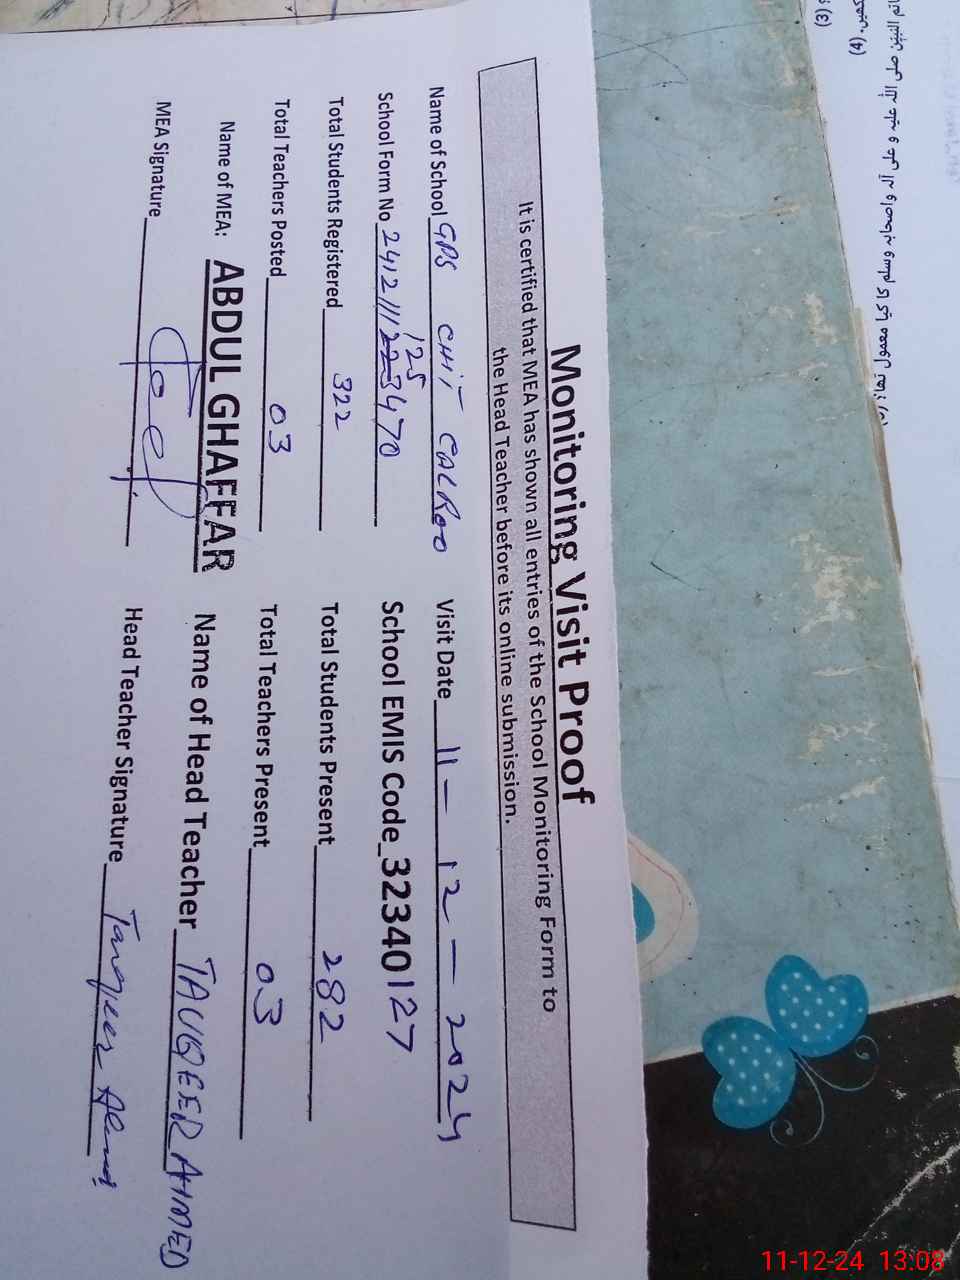 Monitoring Visit Proof
It is certified that MEA has shown all entries of the School Monitoring Form to
the Head Teacher before its online submission.
Name of School GPS CHIT CALROO Visit Date 11-12-2024
School Form No 2412111 125 3470 School EMIS Code 32340127
Total Students Registered 322 Total Students Present 282
Total Teachers Posted 03 Total Teachers Present 03
Name of MEA: ABDUL GHAFFAR Name of Head Teacher TAUQEER AHMED
MEA Signature Head Teacher Signature Tauqeer Ahmed
11-12-24 13:08